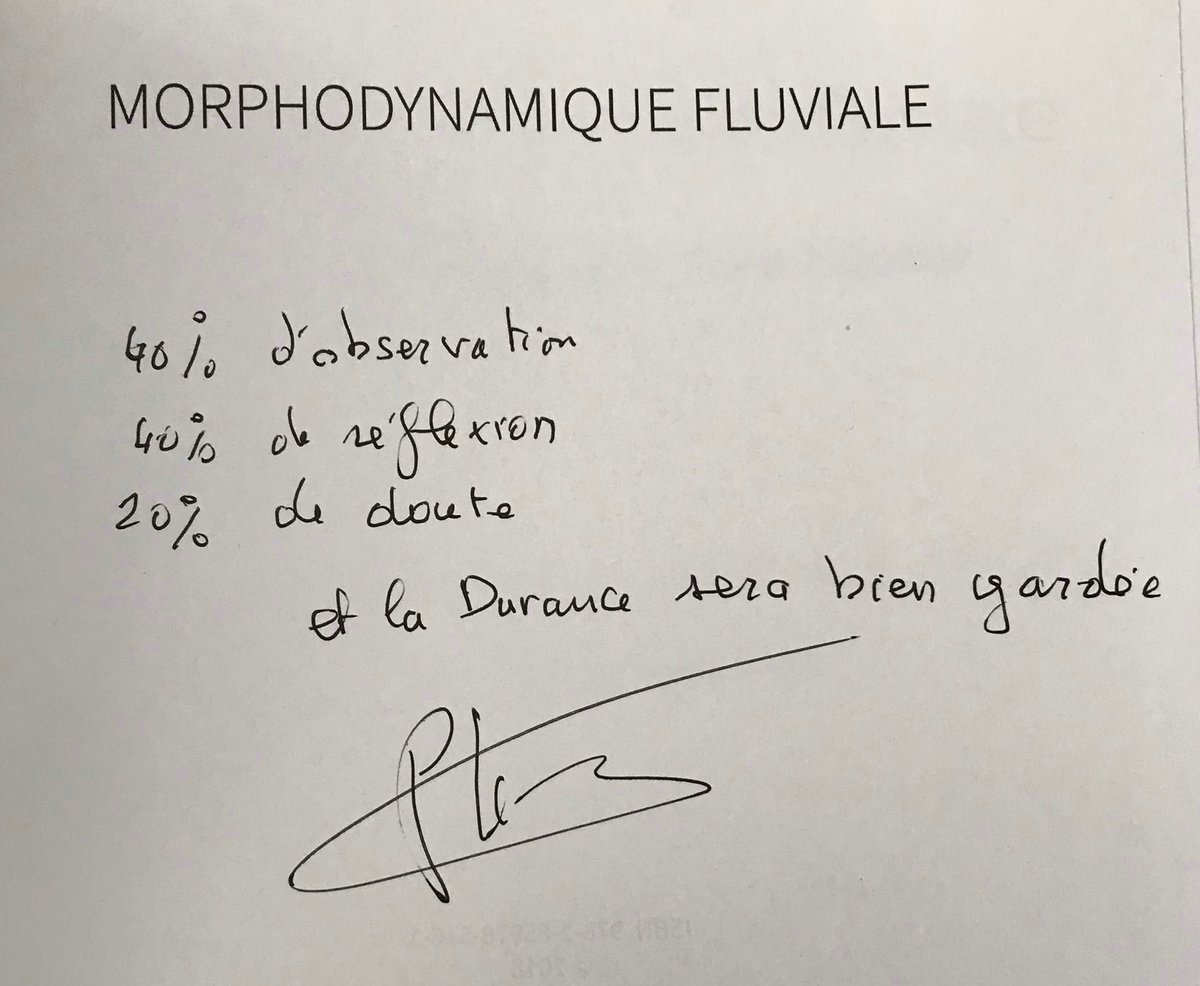 MORPHODYNAMIQUE FLUVIALE
40% d'observation
40% de réflexion
20% de doute
et la Durance sera bien gardée